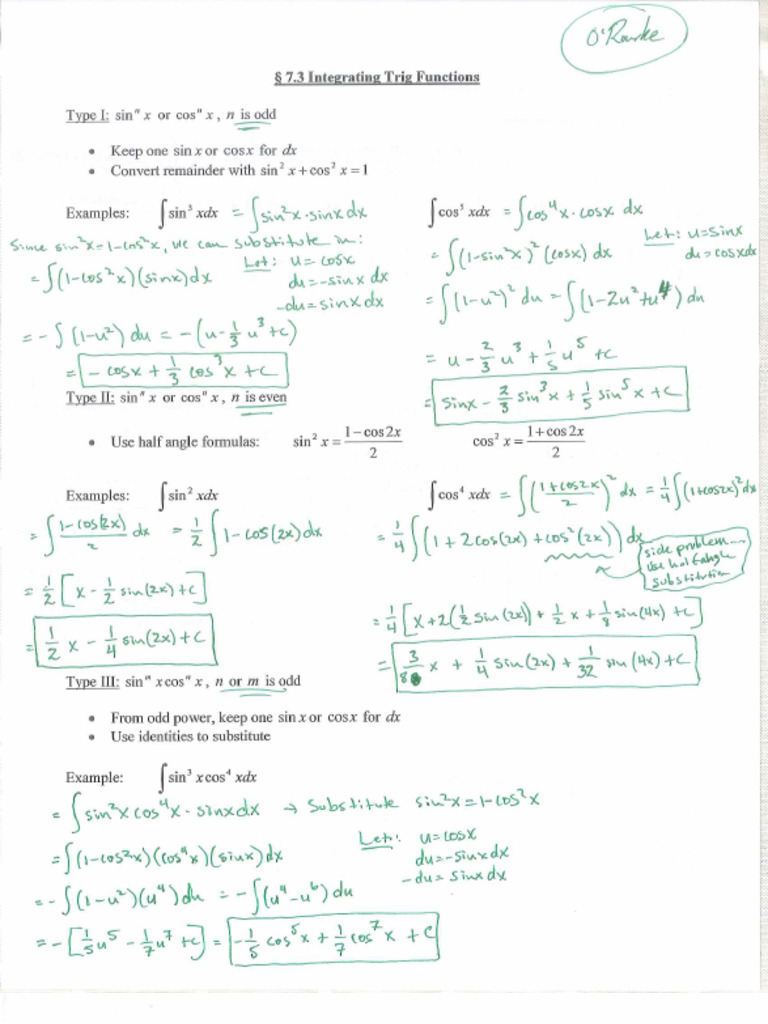 O'Rourke
§ 7.3 Integrating Trig Functions
Type I: sinⁿ x or cosⁿ x , n is odd
• Keep one sin x or cos x for dx
• Convert remainder with sin² x + cos² x = 1
Examples: ∫sin³ xdx = ∫sin²x · sinx dx
Since sin²x = 1-cos²x, we can substitute in:
= ∫(1-cos²x)(sinx)dx
Let: u = cosx
du = -sinx dx
-du = sinx dx
= -∫(1-u²) du = -(u - 1/3 u³ + c)
= -cosx + 1/3 cos³x + c
∫cos⁵ xdx = ∫cos⁴x · cosx dx
Let: u = sinx
du = cosxdx
= ∫(1-sin²x)² (cosx) dx
= ∫(1-u²)² du = ∫(1-2u²+u⁴) du
= u - 2/3 u³ + 1/5 u⁵ + c
= sinx - 2/3 sin³x + 1/5 sin⁵x + c
Type II: sinⁿ x or cosⁿ x , n is even
• Use half angle formulas: sin² x = (1 - cos 2x)/2 cos² x = (1 + cos 2x)/2
Examples: ∫sin² xdx
= ∫(1-cos(2x))/2 dx = 1/2 ∫1-cos(2x)dx
= 1/2 [x - 1/2 sin(2x) + c]
= 1/2 x - 1/4 sin(2x) + c
∫cos⁴ xdx = ∫((1+cos2x)/2)² dx = 1/4 ∫(1+cos2x)² dx
= 1/4 ∫(1 + 2cos(2x) + cos²(2x)) dx
side problem....
use half angle
substitution
= 1/4 [x + 2(1/2 sin(2x)) + 1/2 x + 1/8 sin(4x) + c]
= 3/8 x + 1/4 sin(2x) + 1/32 sin(4x) + c
Type III: sinⁿ x cosᵐ x , n or m is odd
• From odd power, keep one sin x or cos x for dx
• Use identities to substitute
Example: ∫sin³ x cos⁴ xdx
= ∫sin²x cos⁴x · sinxdx → Substitute sin²x = 1-cos²x
= ∫(1-cos²x)(cos⁴x)(sinx)dx
Let: u = cosx
du = -sinxdx
-du = sinxdx
= -∫(1-u²)(u⁴)du = -∫(u⁴-u⁶)du
= -[1/5 u⁵ - 1/7 u⁷ + c] = -1/5 cos⁵x + 1/7 cos⁷x + c